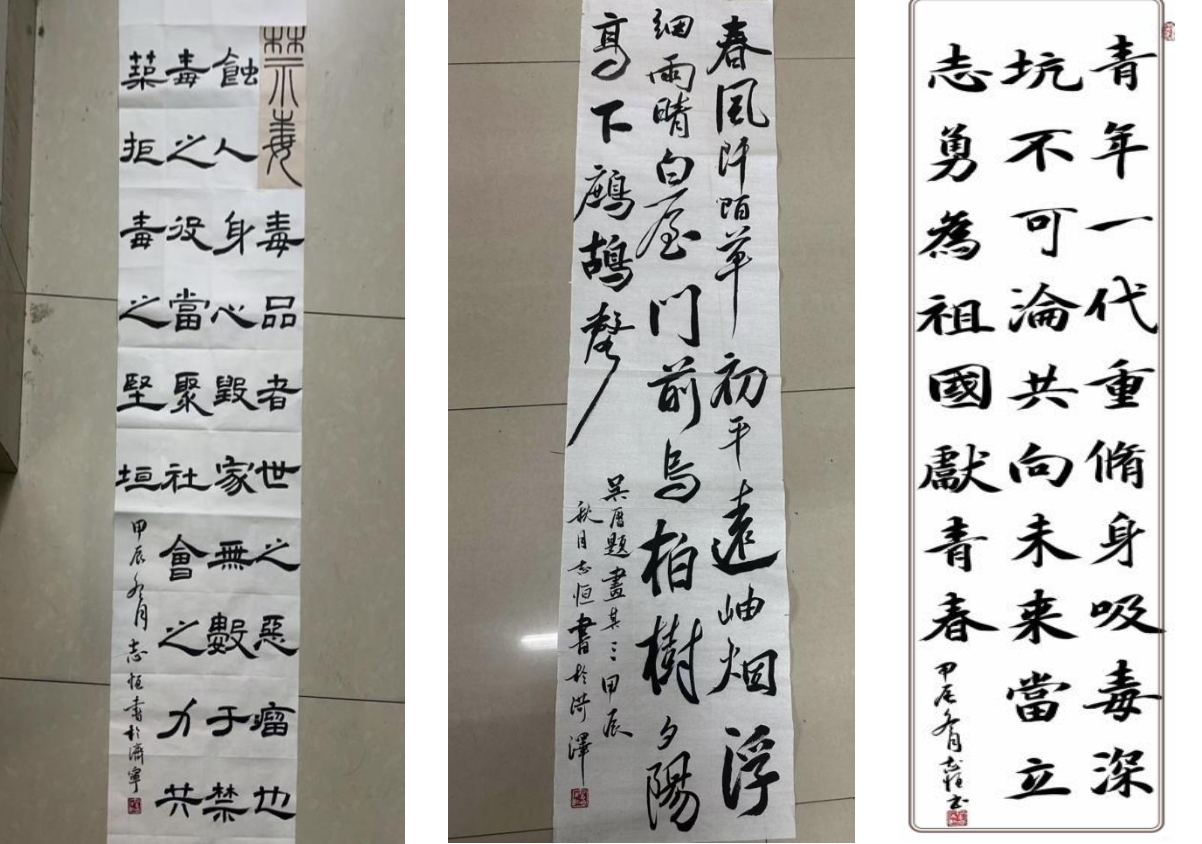 禁毒
毒品者世之惡瘤也
蝕人身心毀家無數于禁
毒之役當聚社會之力共
築拒毒之堅垣
甲辰冬月志恒書於濟寧
春風阡陌草初平遠岫烟浮
細雨晴白屋門前烏柏樹夕陽
高下鷓鴣聲
吴曆題畫其三甲辰
秋月志恒書於菏澤
青年一代重脩身吸毒深
坑不可淪共向未来當立
志勇為祖國獻青春
甲辰冬月志恒書